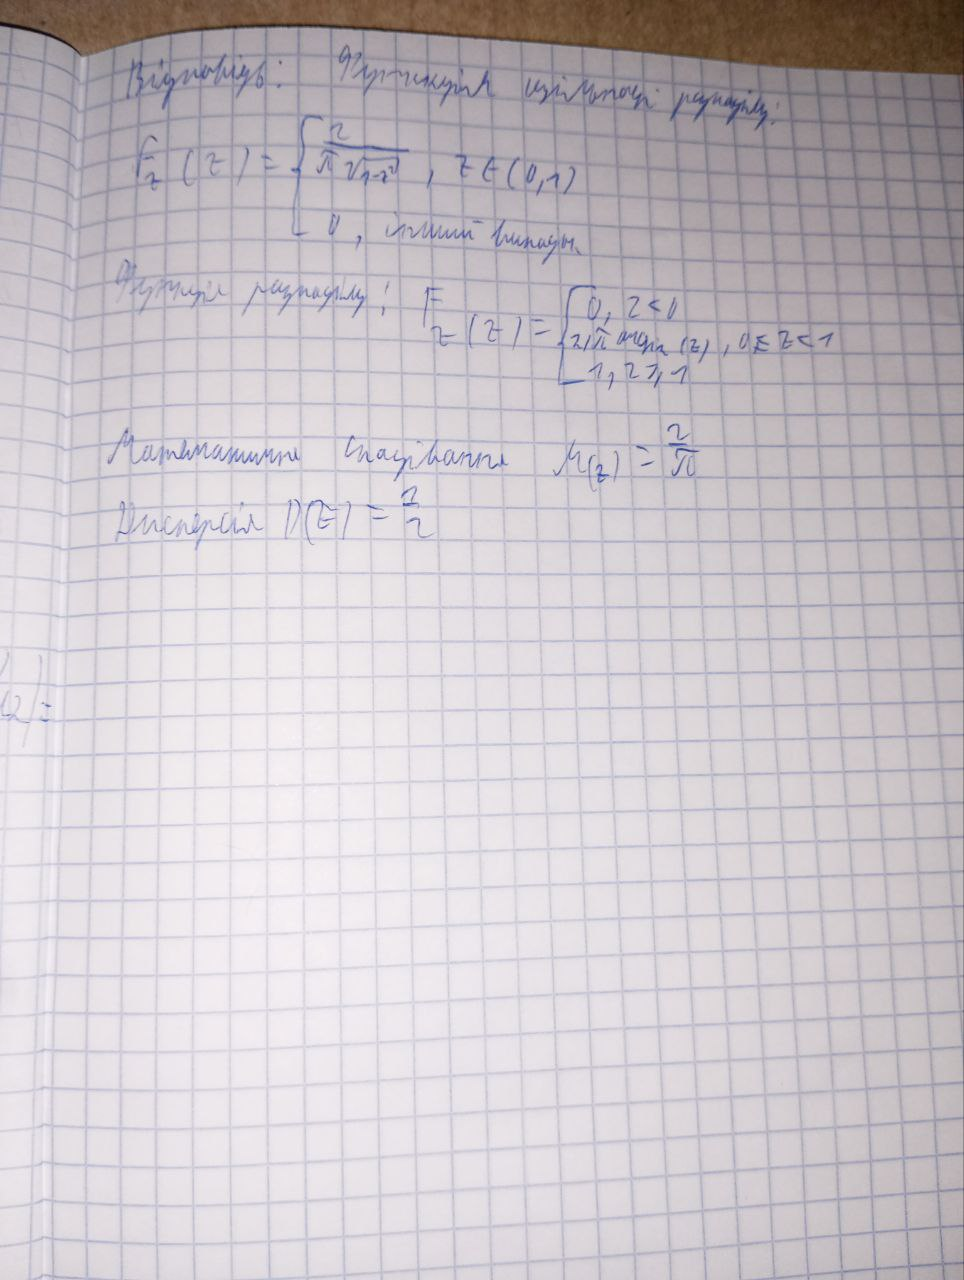 Відповідь: Функція щільності розподілу:
F_z (z) = { 2 / (π √(1-z²)) , z ∈ (0,1)
0 , інший випадок.
Функція розподілу: F_z (z) = { 0, z < 0
2/π arcsin (z) , 0 ≤ z < 1
1, z ≥ 1
Математичне сподівання M(z) = 2/π
Дисперсія D(Z) = 1/2